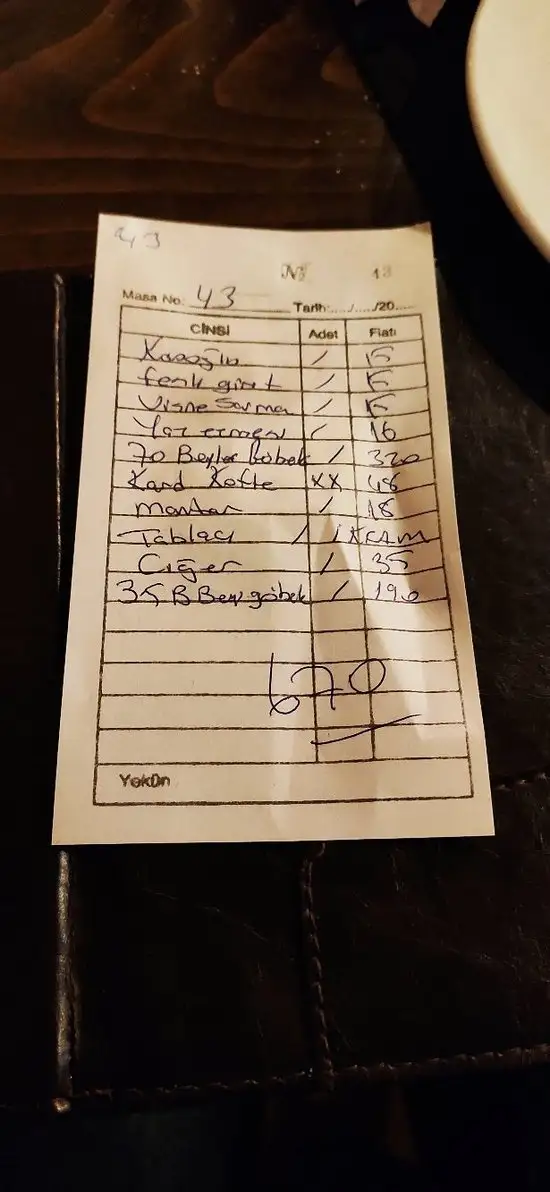 43
No 13
Masa No: 43 Tarih:...../...../20.....
CİNSİ Adet Fiatı
/ 15
/ 15
Vişne Sarma / 15
/ 16
70 Beyler / 320
Kand Köfte XX 48
mantar / 18
Tablacı / İKRAM
Ciğer / 35
35 B Bey göbek / 190
670
Yekûn